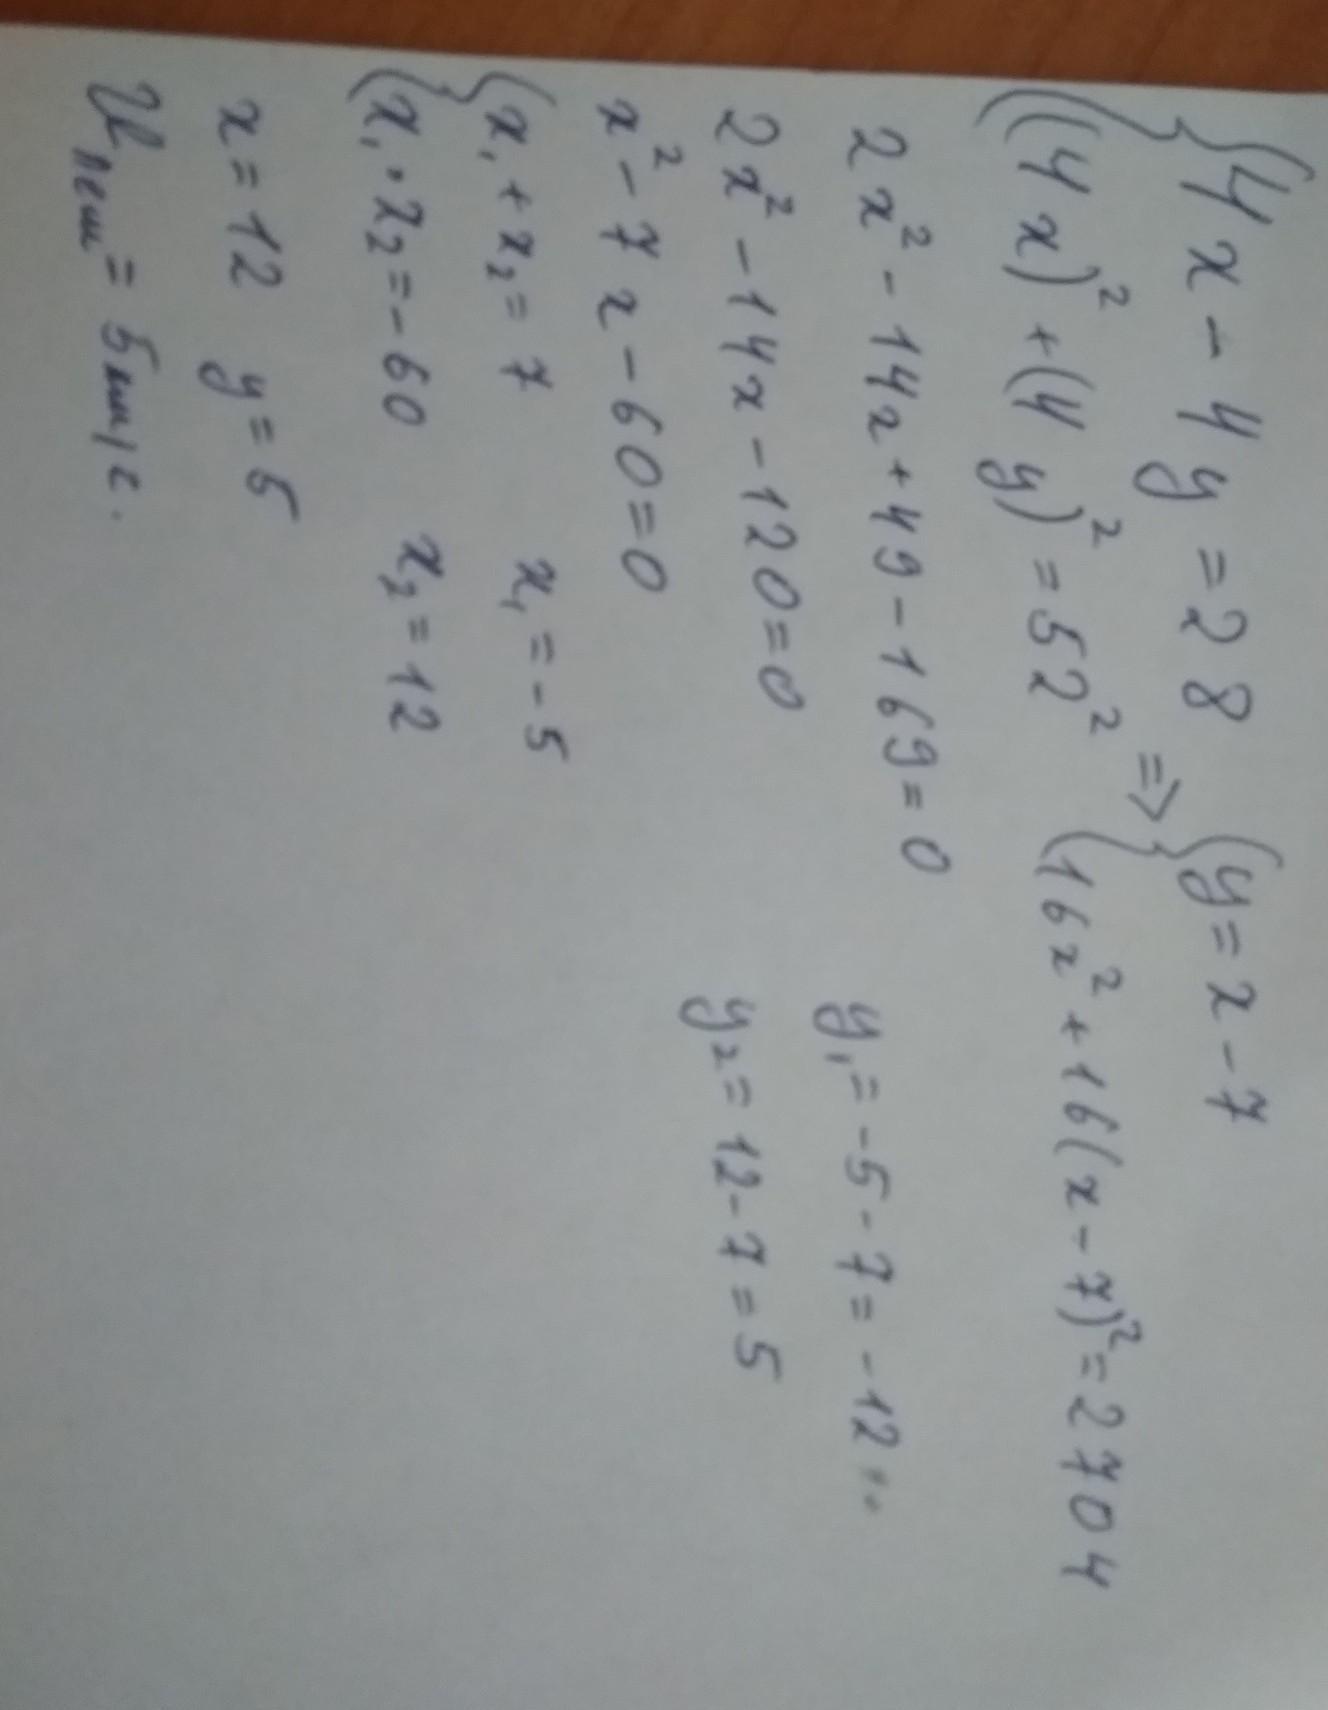 {4x - 4y = 28
{(4x)² + (4y)² = 52² => {y = x - 7
{16x² + 16(x - 7)² = 2704
2x² - 14x + 49 - 169 = 0
2x² - 14x - 120 = 0
x² - 7x - 60 = 0
{x₁ + x₂ = 7 x₁ = -5
{x₁ · x₂ = -60 x₂ = 12
y₁ = -5 - 7 = -12
y₂ = 12 - 7 = 5
x = 12 y = 5
= 5 км/с.